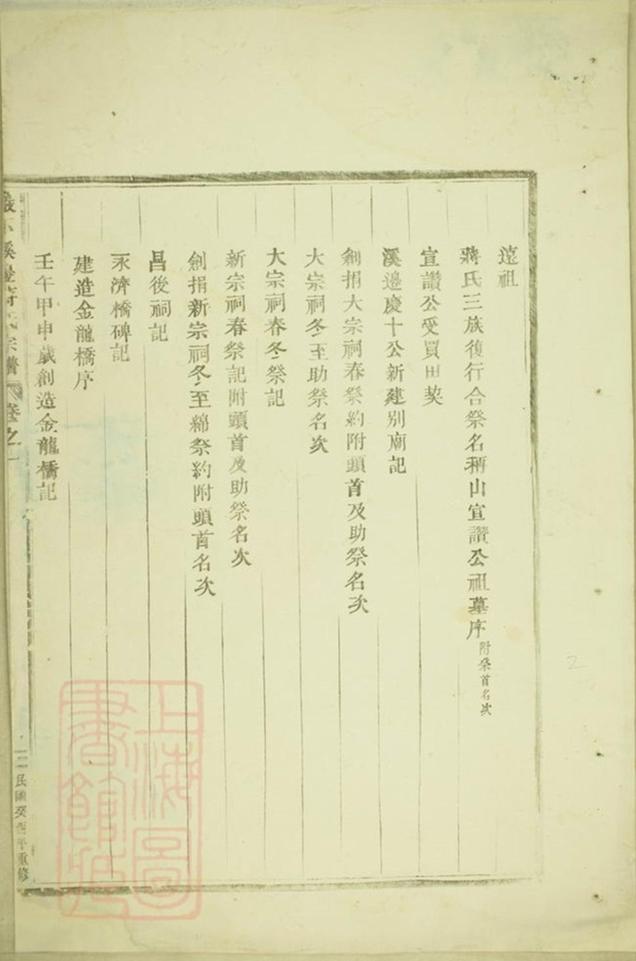 遠祖
蔣氏三族復行合祭名山宣讚公祖墓序附㕘首名次
宣讚公受買田契
溪邊慶十公新建別廟記
創捐大宗祠春祭約附頭首及助祭名次
大宗祠冬至助祭名次
大宗祠春冬祭記
新宗祠春祭記附頭首及助祭名次
創捐新宗祠冬至綿祭約附頭首名次
昌後祠記
永濟橋碑記
建造金龍橋序
壬午甲申歲創造金龍橋記
宗譜 卷之一
民國癸酉年重修
上海圖書館藏